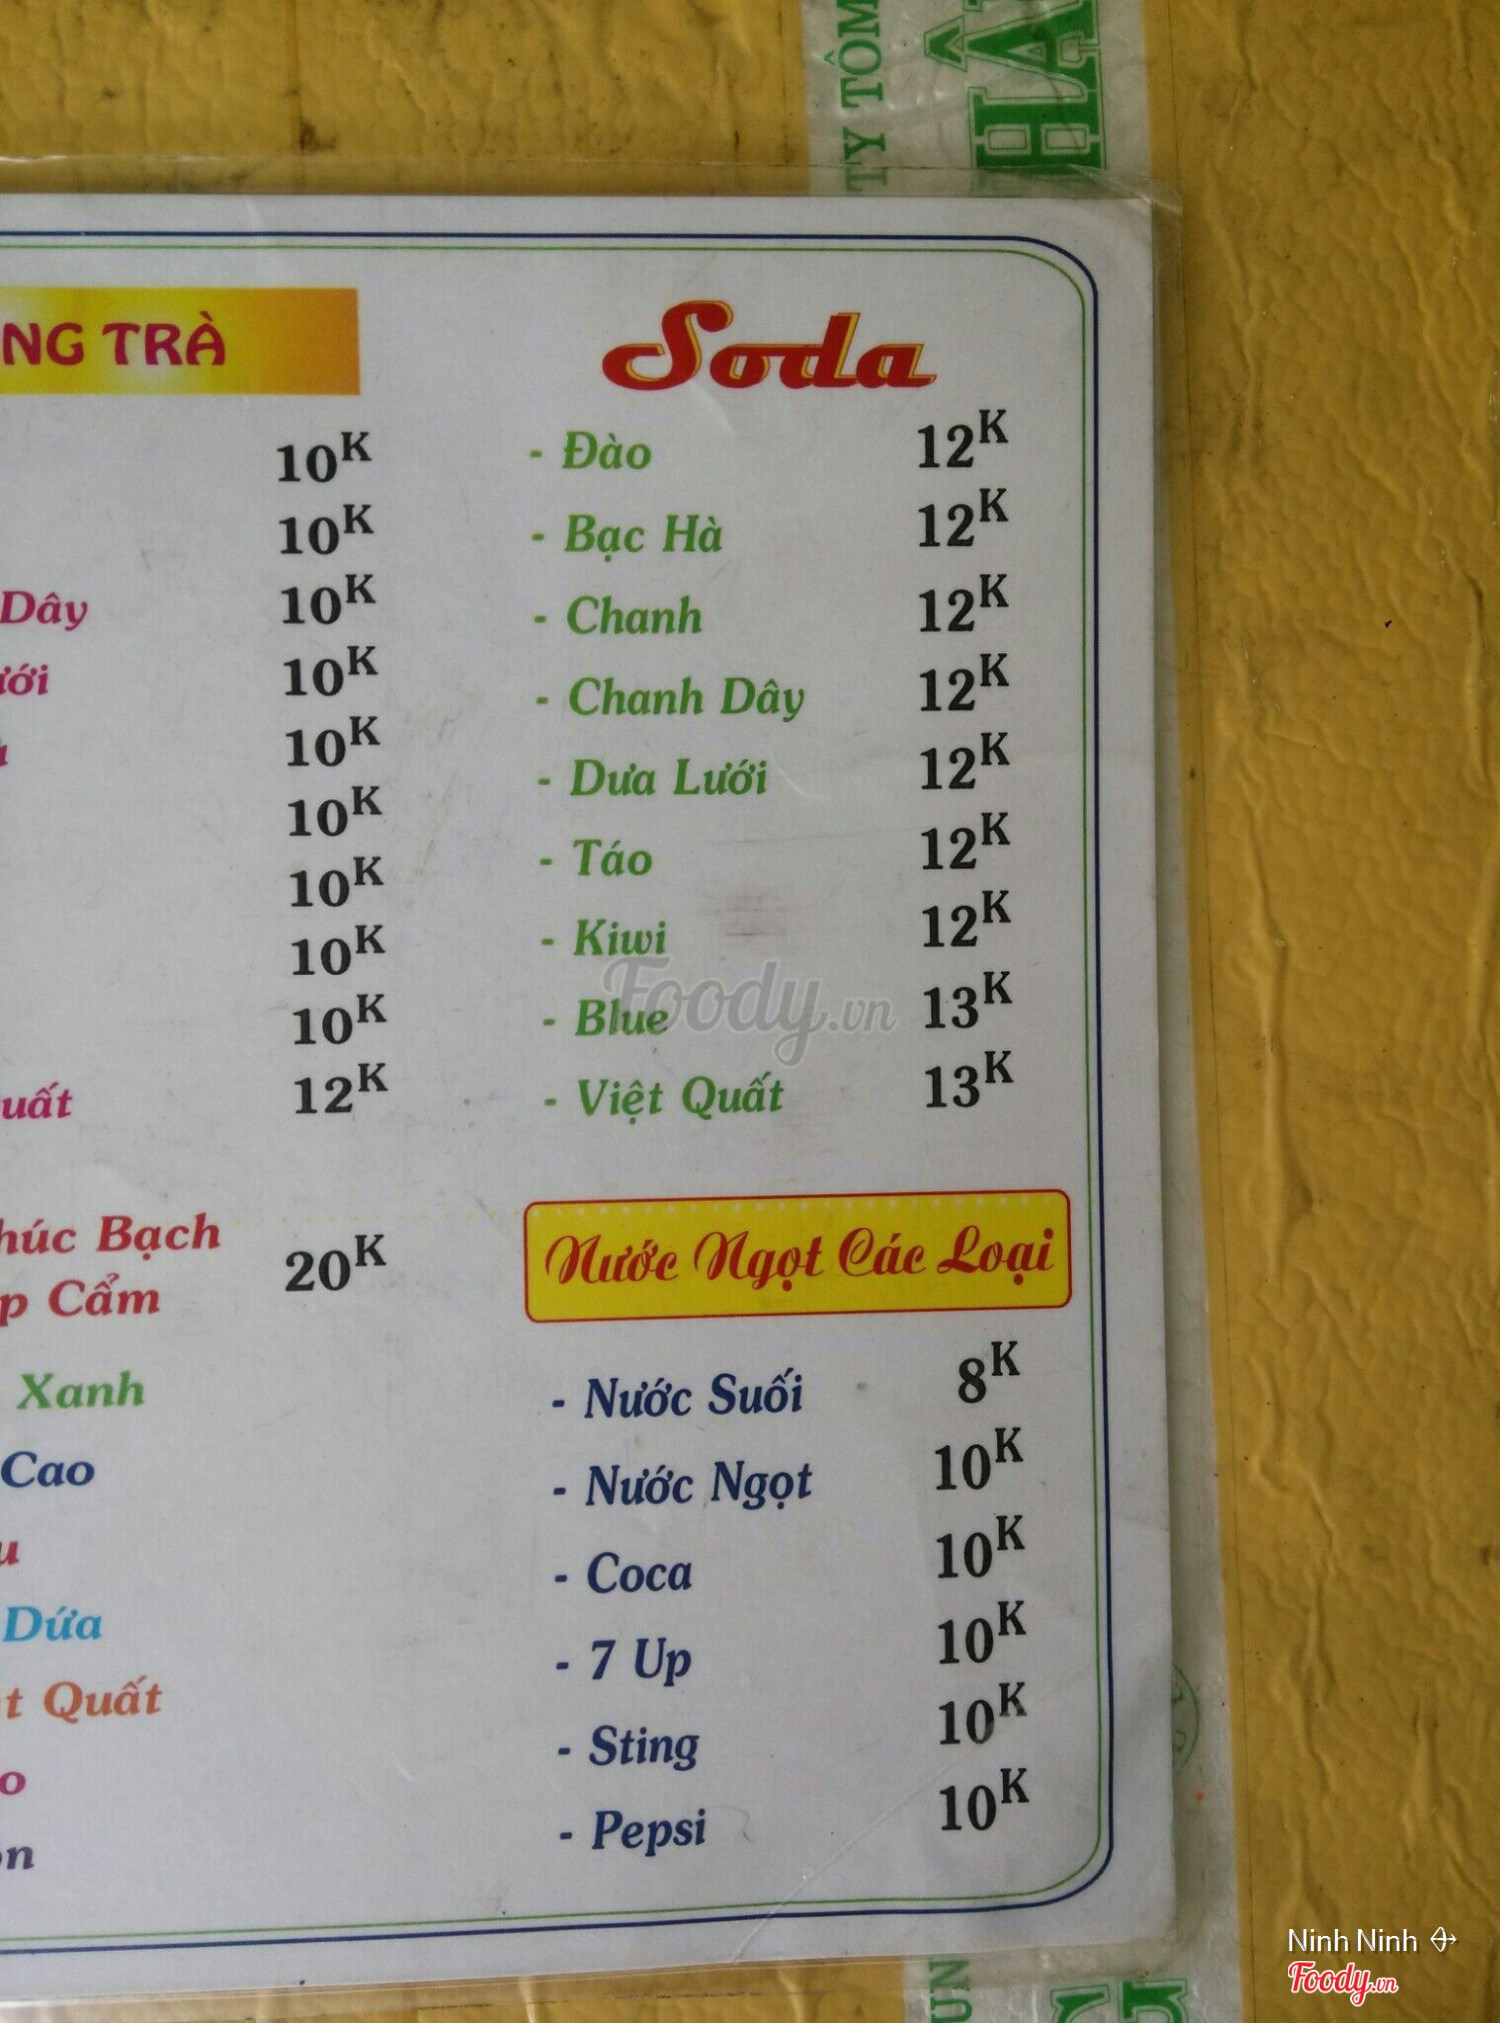 TY TÔM
HÂ
NG TRÀ
10K
10K
Dây 10K
ưới 10K
10K
10K
10K
10K
10K
uất 12K
húc Bạch
p Cẩm 20K
Xanh
Cao
u
Dứa
t Quất
o
ôn
Soda
- Đào 12K
- Bạc Hà 12K
- Chanh 12K
- Chanh Dây 12K
- Dưa Lưới 12K
- Táo 12K
- Kiwi 12K
- Blue 13K
- Việt Quất 13K
Foody.vn
Nước Ngọt Các Loại
- Nước Suối 8K
- Nước Ngọt 10K
- Coca 10K
- 7 Up 10K
- Sting 10K
- Pepsi 10K
UN
Ninh Ninh
Foody.vn